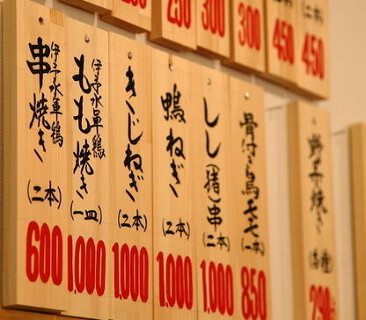 250
250
300
300
(二本)
450
450
伊予水軍鶏
串焼き
(二本)
600
伊予水軍鶏
もも焼き
(一皿)
1,000
きじねぎ
(二本)
1,000
鴨ねぎ
(二本)
1,000
しし(猪)串
(二本)
1,000
(一本)
850
野菜焼き
(各種)